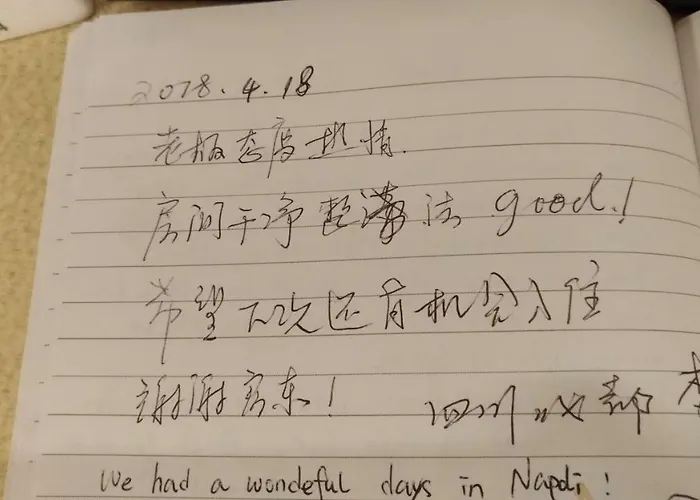 2018.4.18
老板态度热情.
房间干净整洁 good!
希望下次还有机会入住
谢谢房东!
四川成都
We had a wondeful days in Napoli!